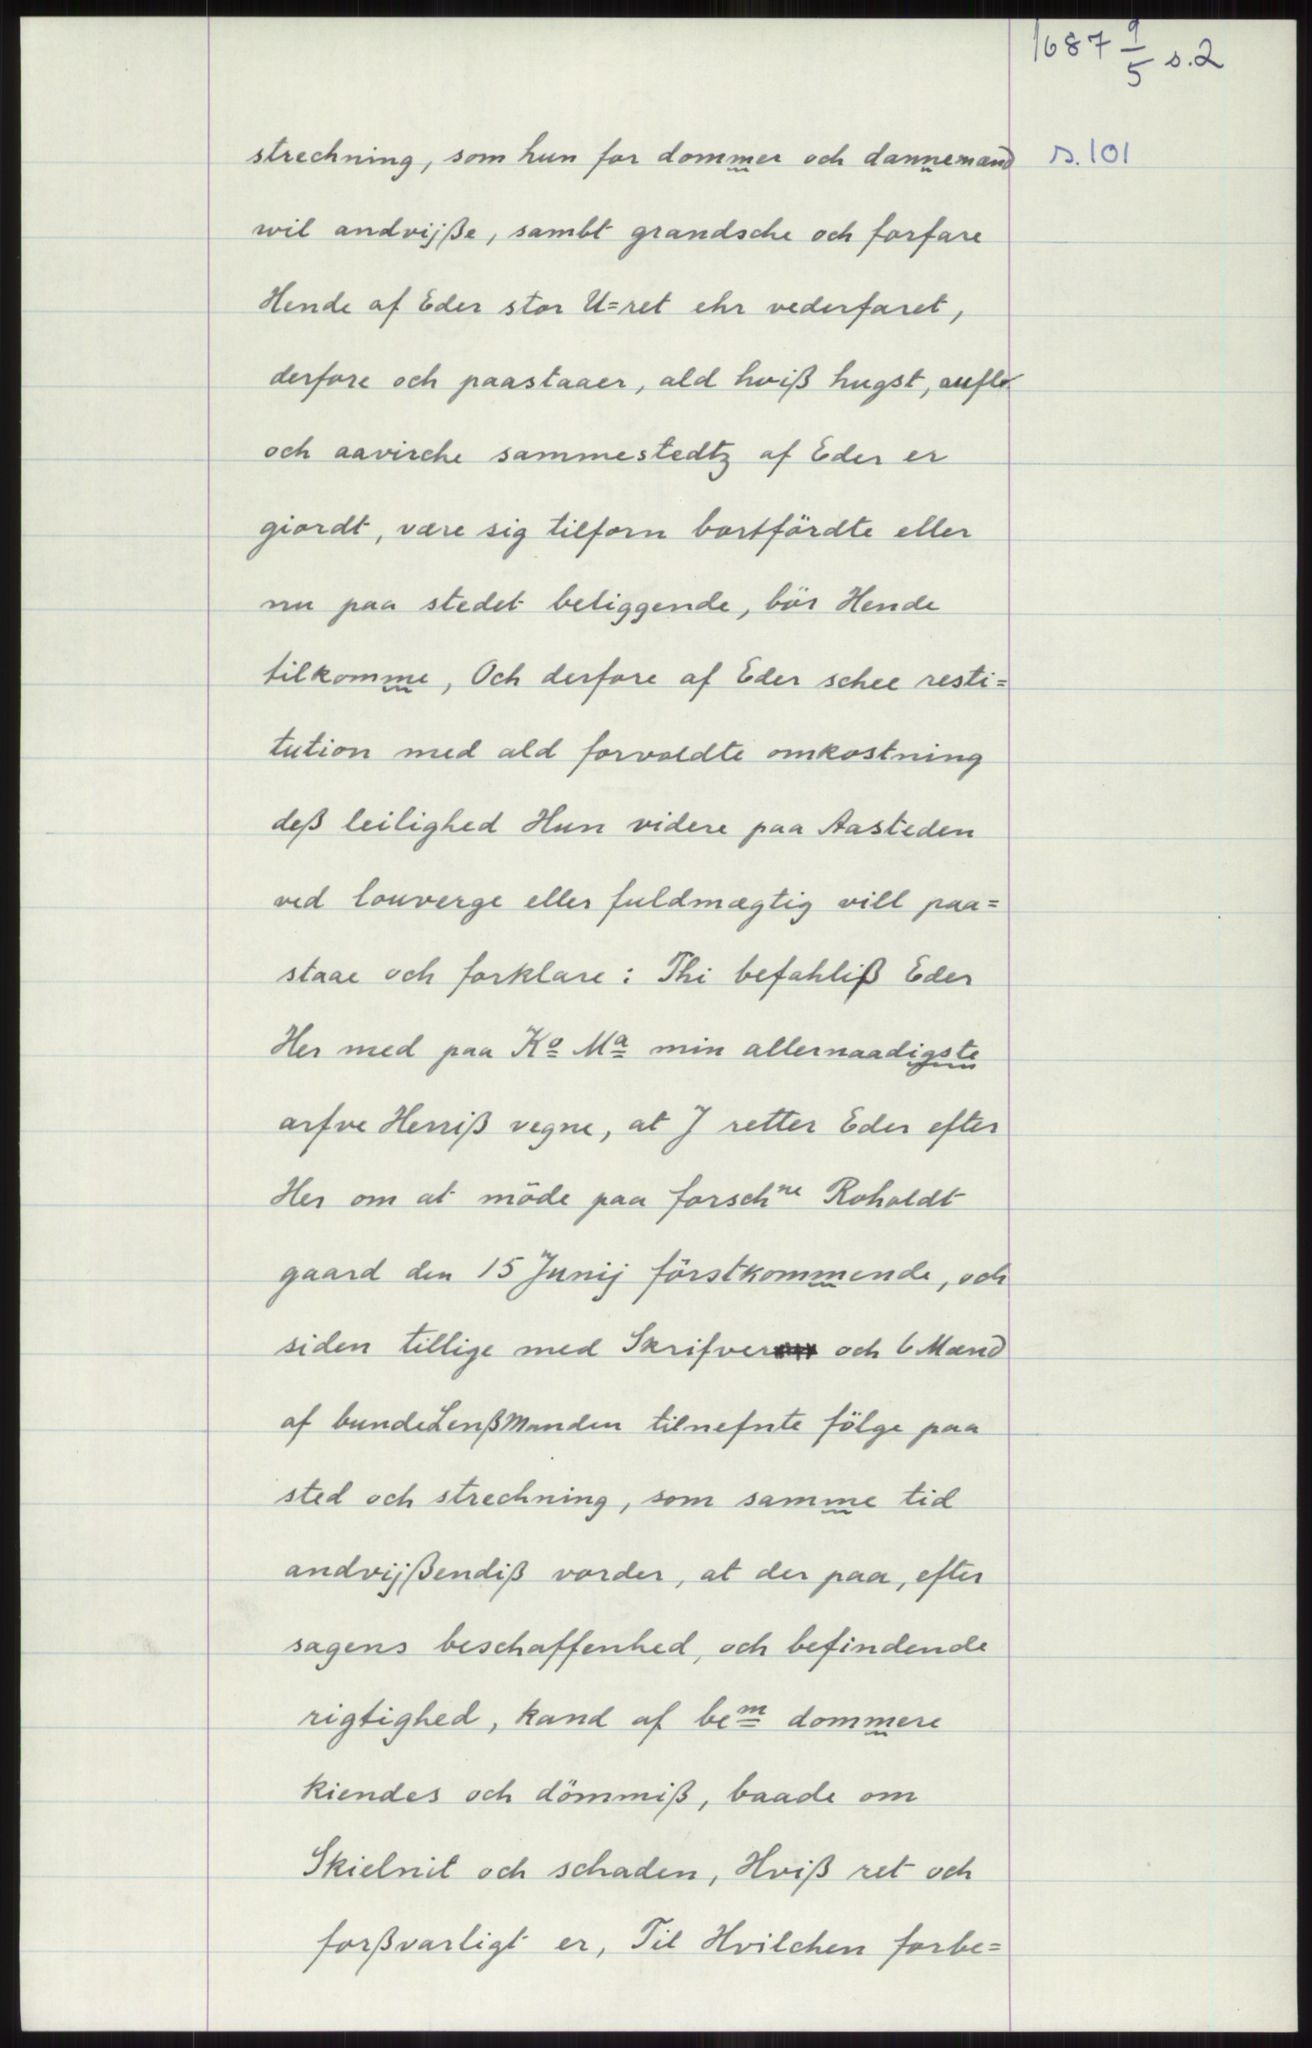 1687 9/5 s.2
strechning, som hun for dommer och dannemænd s.101
wil andvijße, sambt grandsche och forfare
Hende af Eder stor U=ret ehr vederfaret,
derfore och paastaaer, ald hviß hugst,
och aavirche sammestedtz af Eder er
giordt, være sig tilforn bortfördte eller
nu paa stedet beliggende, bör Hende
tilkomme, Och derfore af Eder schee resti=
tution med ald forvoldte omkostning
deß leilighed Hun videre paa Aasteden
ved louverge eller fuldmægtig vill paa=
staae och forklare: Thi befahliß Eder
Her med paa Ko Ma min allernaadigste
arfve Herriß vegne, at J retter Eder efter
Her om at möde paa forschne Roholdt
gaard den 15 Junij förstkommende, och
siden tillige med Skrifver och 6 Mænd
af bundeLenßmanden tilnefnte fölge paa
sted och strechning, som samme tid
andvijßendiß vorder, at der paa, efter
sagens beschaffenhed, och befindende
rigtighed, kand af bem dommere
kiendes och dömmiß, baade om
Skielnit och schaden, Hviß ret och
forßvarligt er, Til Hvilchen forbe=